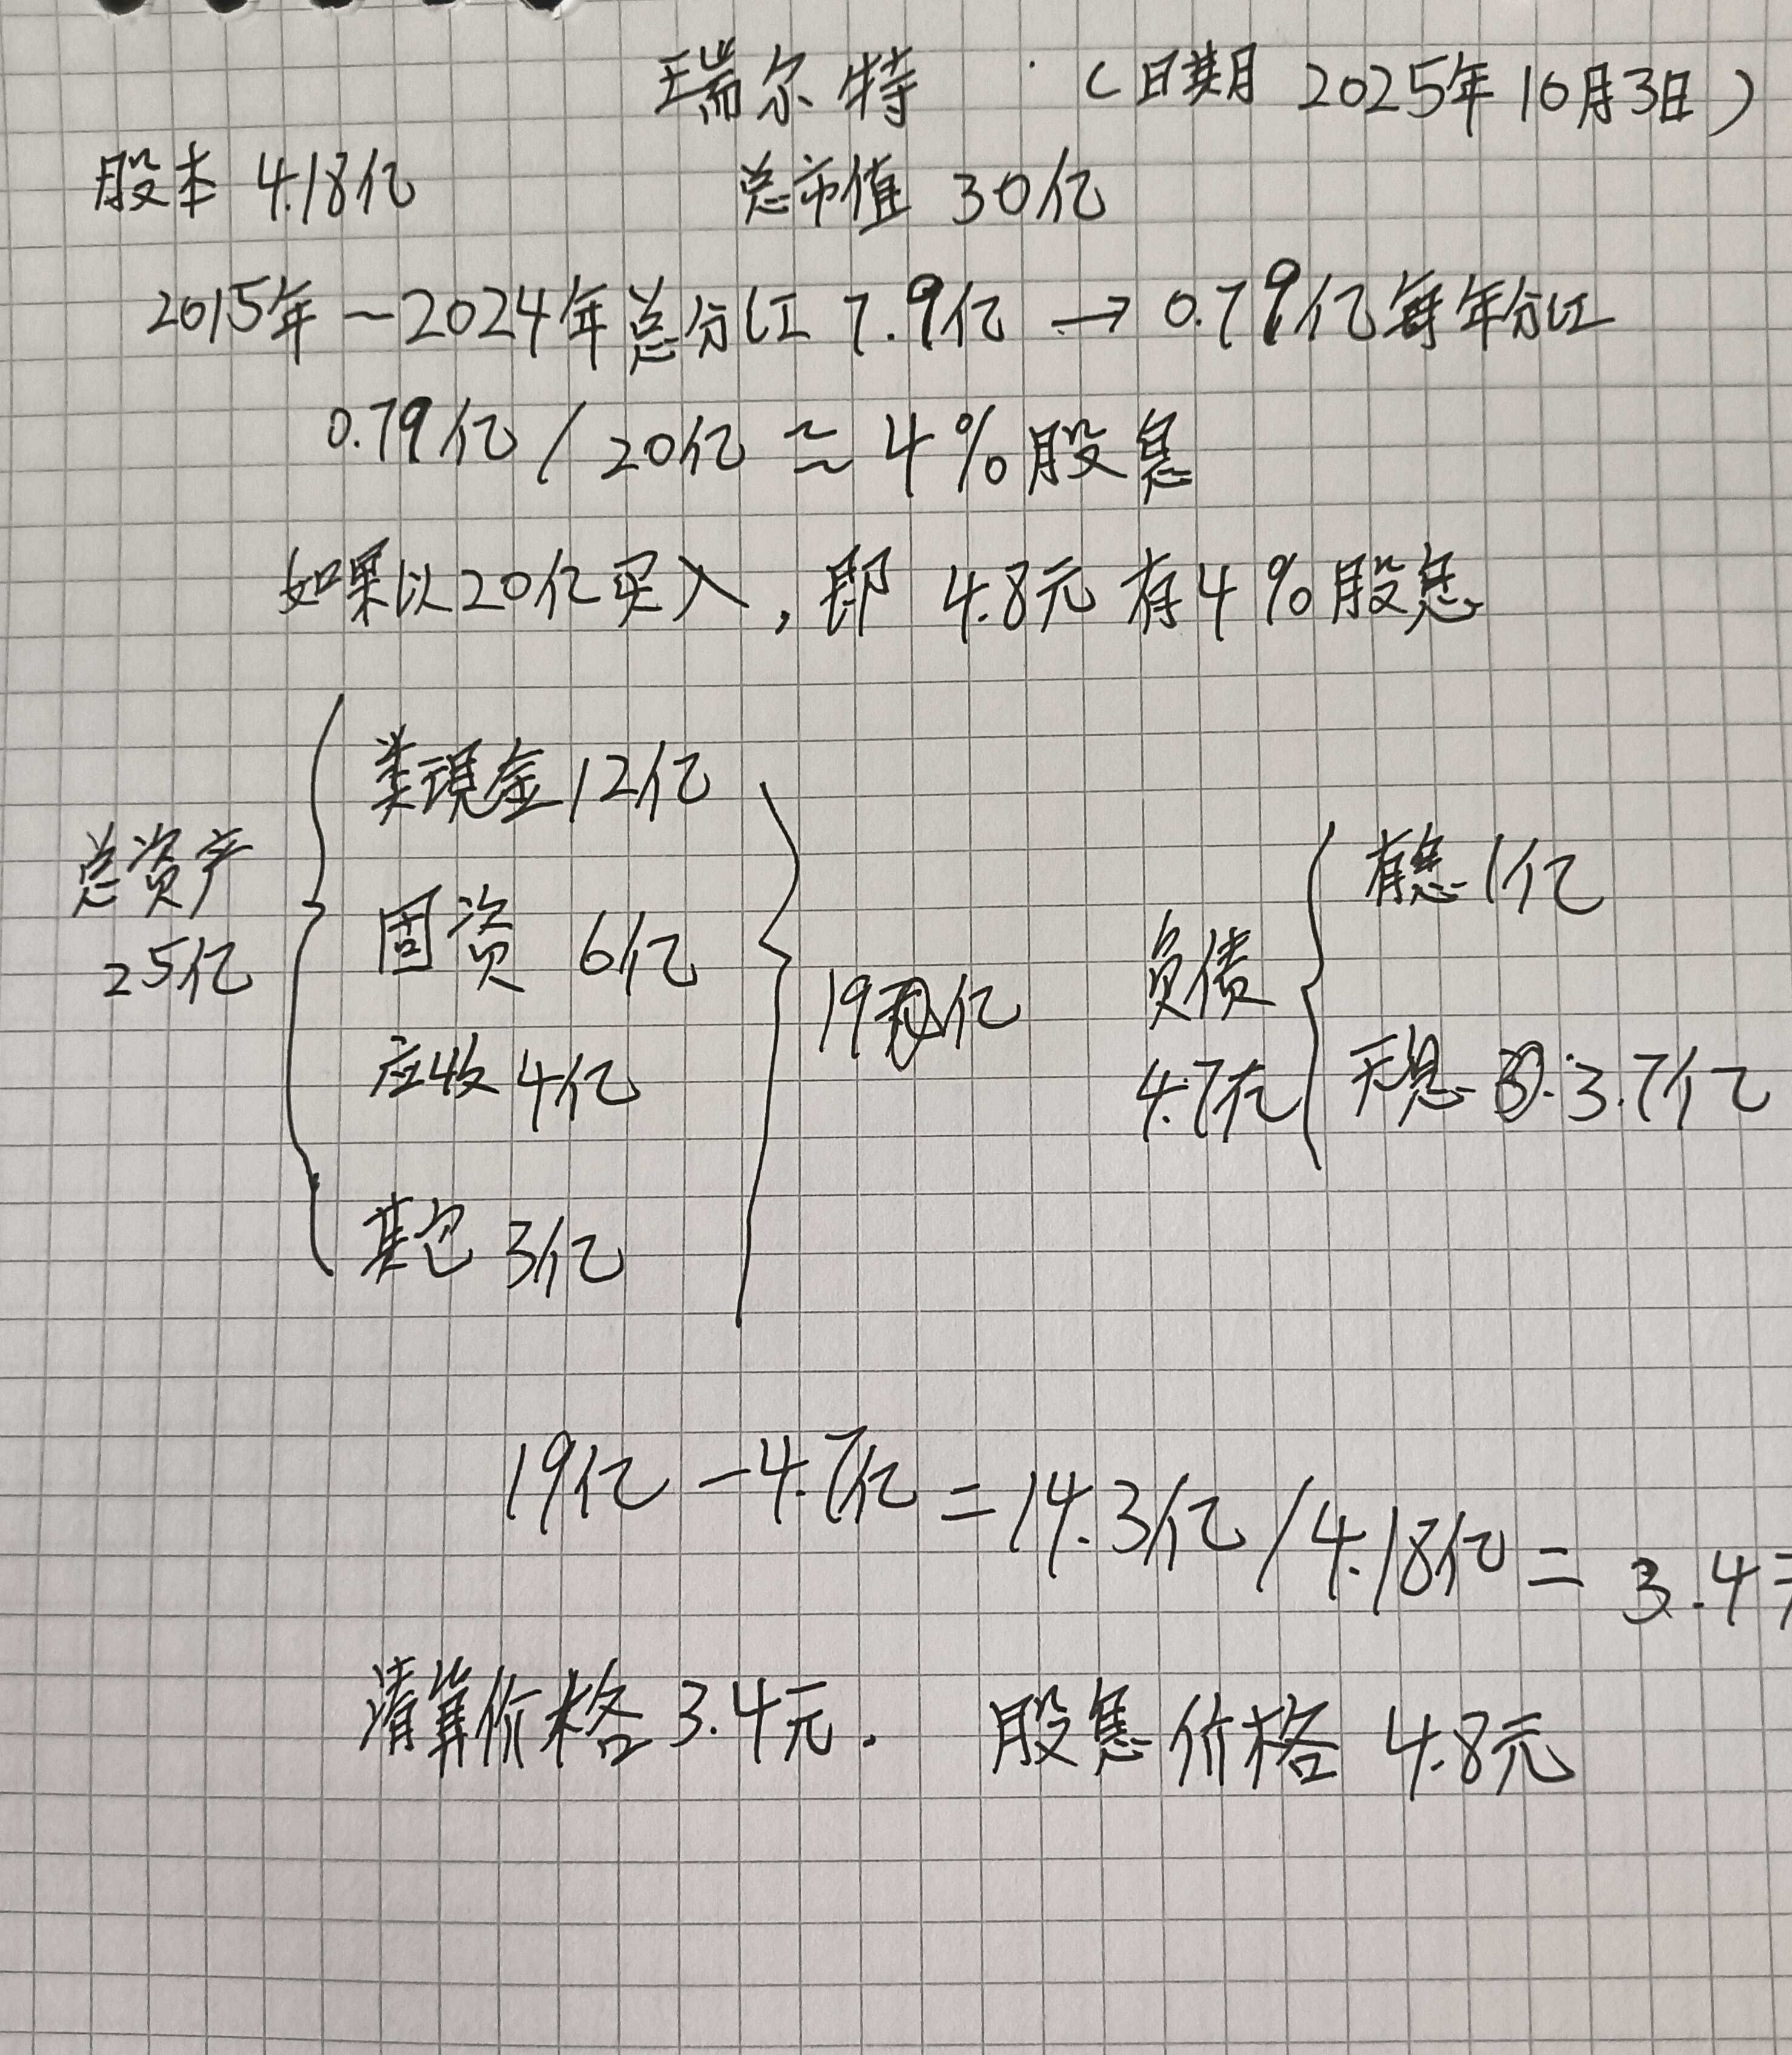 瑞尔特 (日期 2025年10月3日)
股本 4.18亿 总市值 30亿
2015年-2024年总分红 7.9亿 → 0.79亿每年分红
0.79亿 / 20亿 ≈ 4%股息
如果以20亿买入, 即 4.8元有4%股息
总资产
25亿
类现金12亿
固资 6亿
应收4亿
其它 3亿
19亿
负债
4.7亿
有息1亿
无息 3.7亿
19亿-4.7亿=14.3亿/4.18亿= 3.4元
清算价格3.4元. 股息价格 4.8元